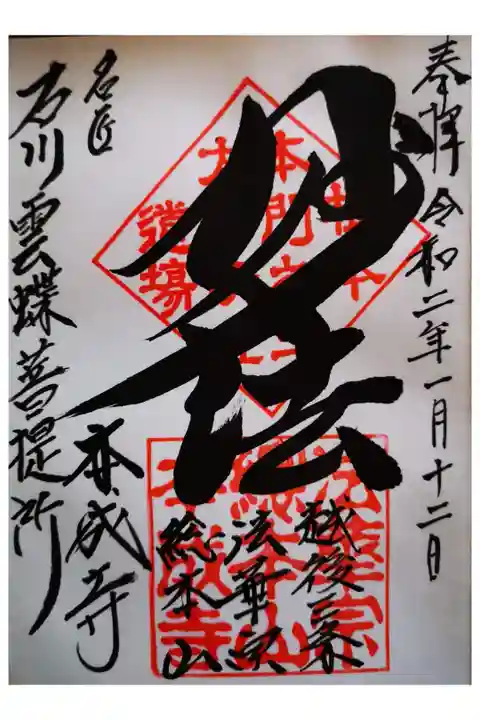 奉拝 令和二年一月十二日
妙法
越後三条
法華宗
総本山
本成寺
名匠
石川雲蝶菩提所
法華宗
總本山
本成寺